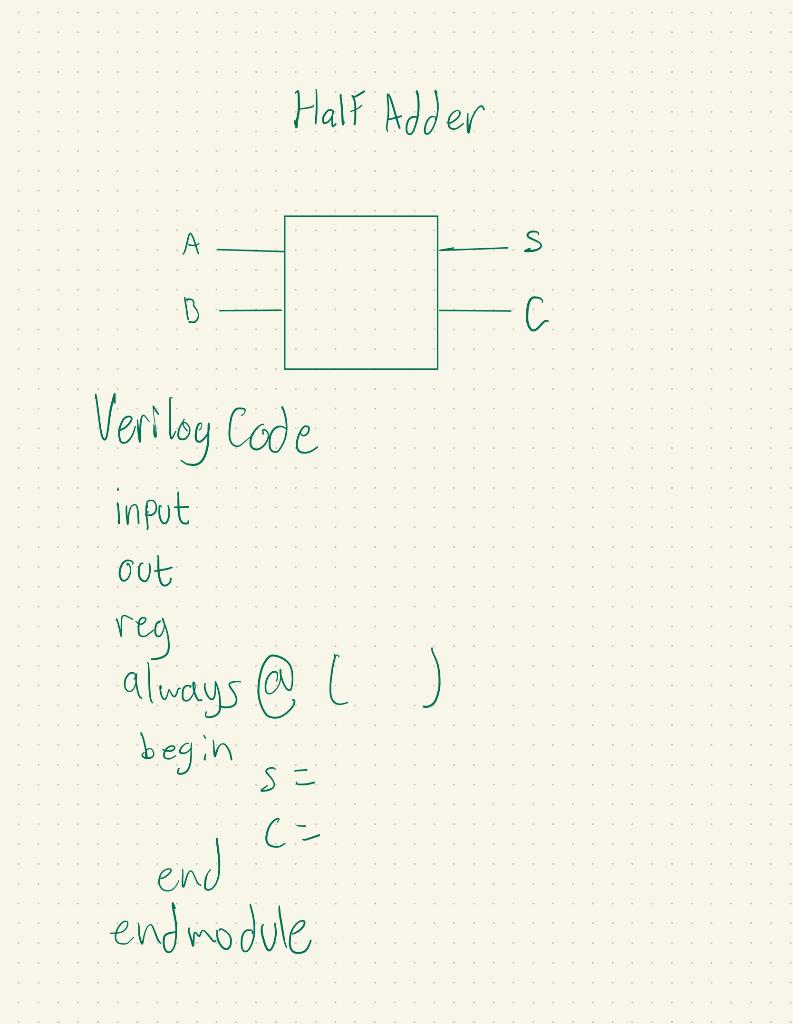 Half Adder
A S
B C
Verilog Code
input
out
reg
always @ ( )
begin
s =
c =
end
endmodule